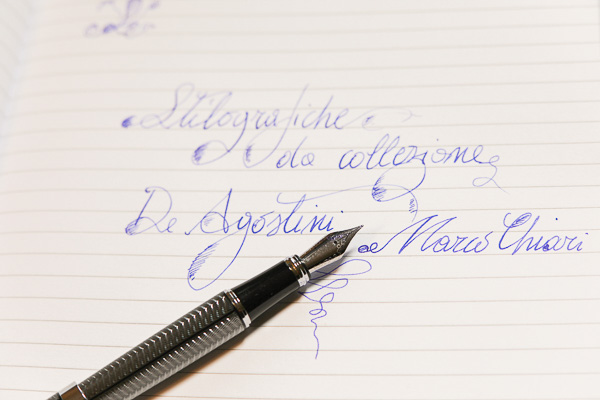 Stilografiche
da collezione
De Agostini
Marco Chiari